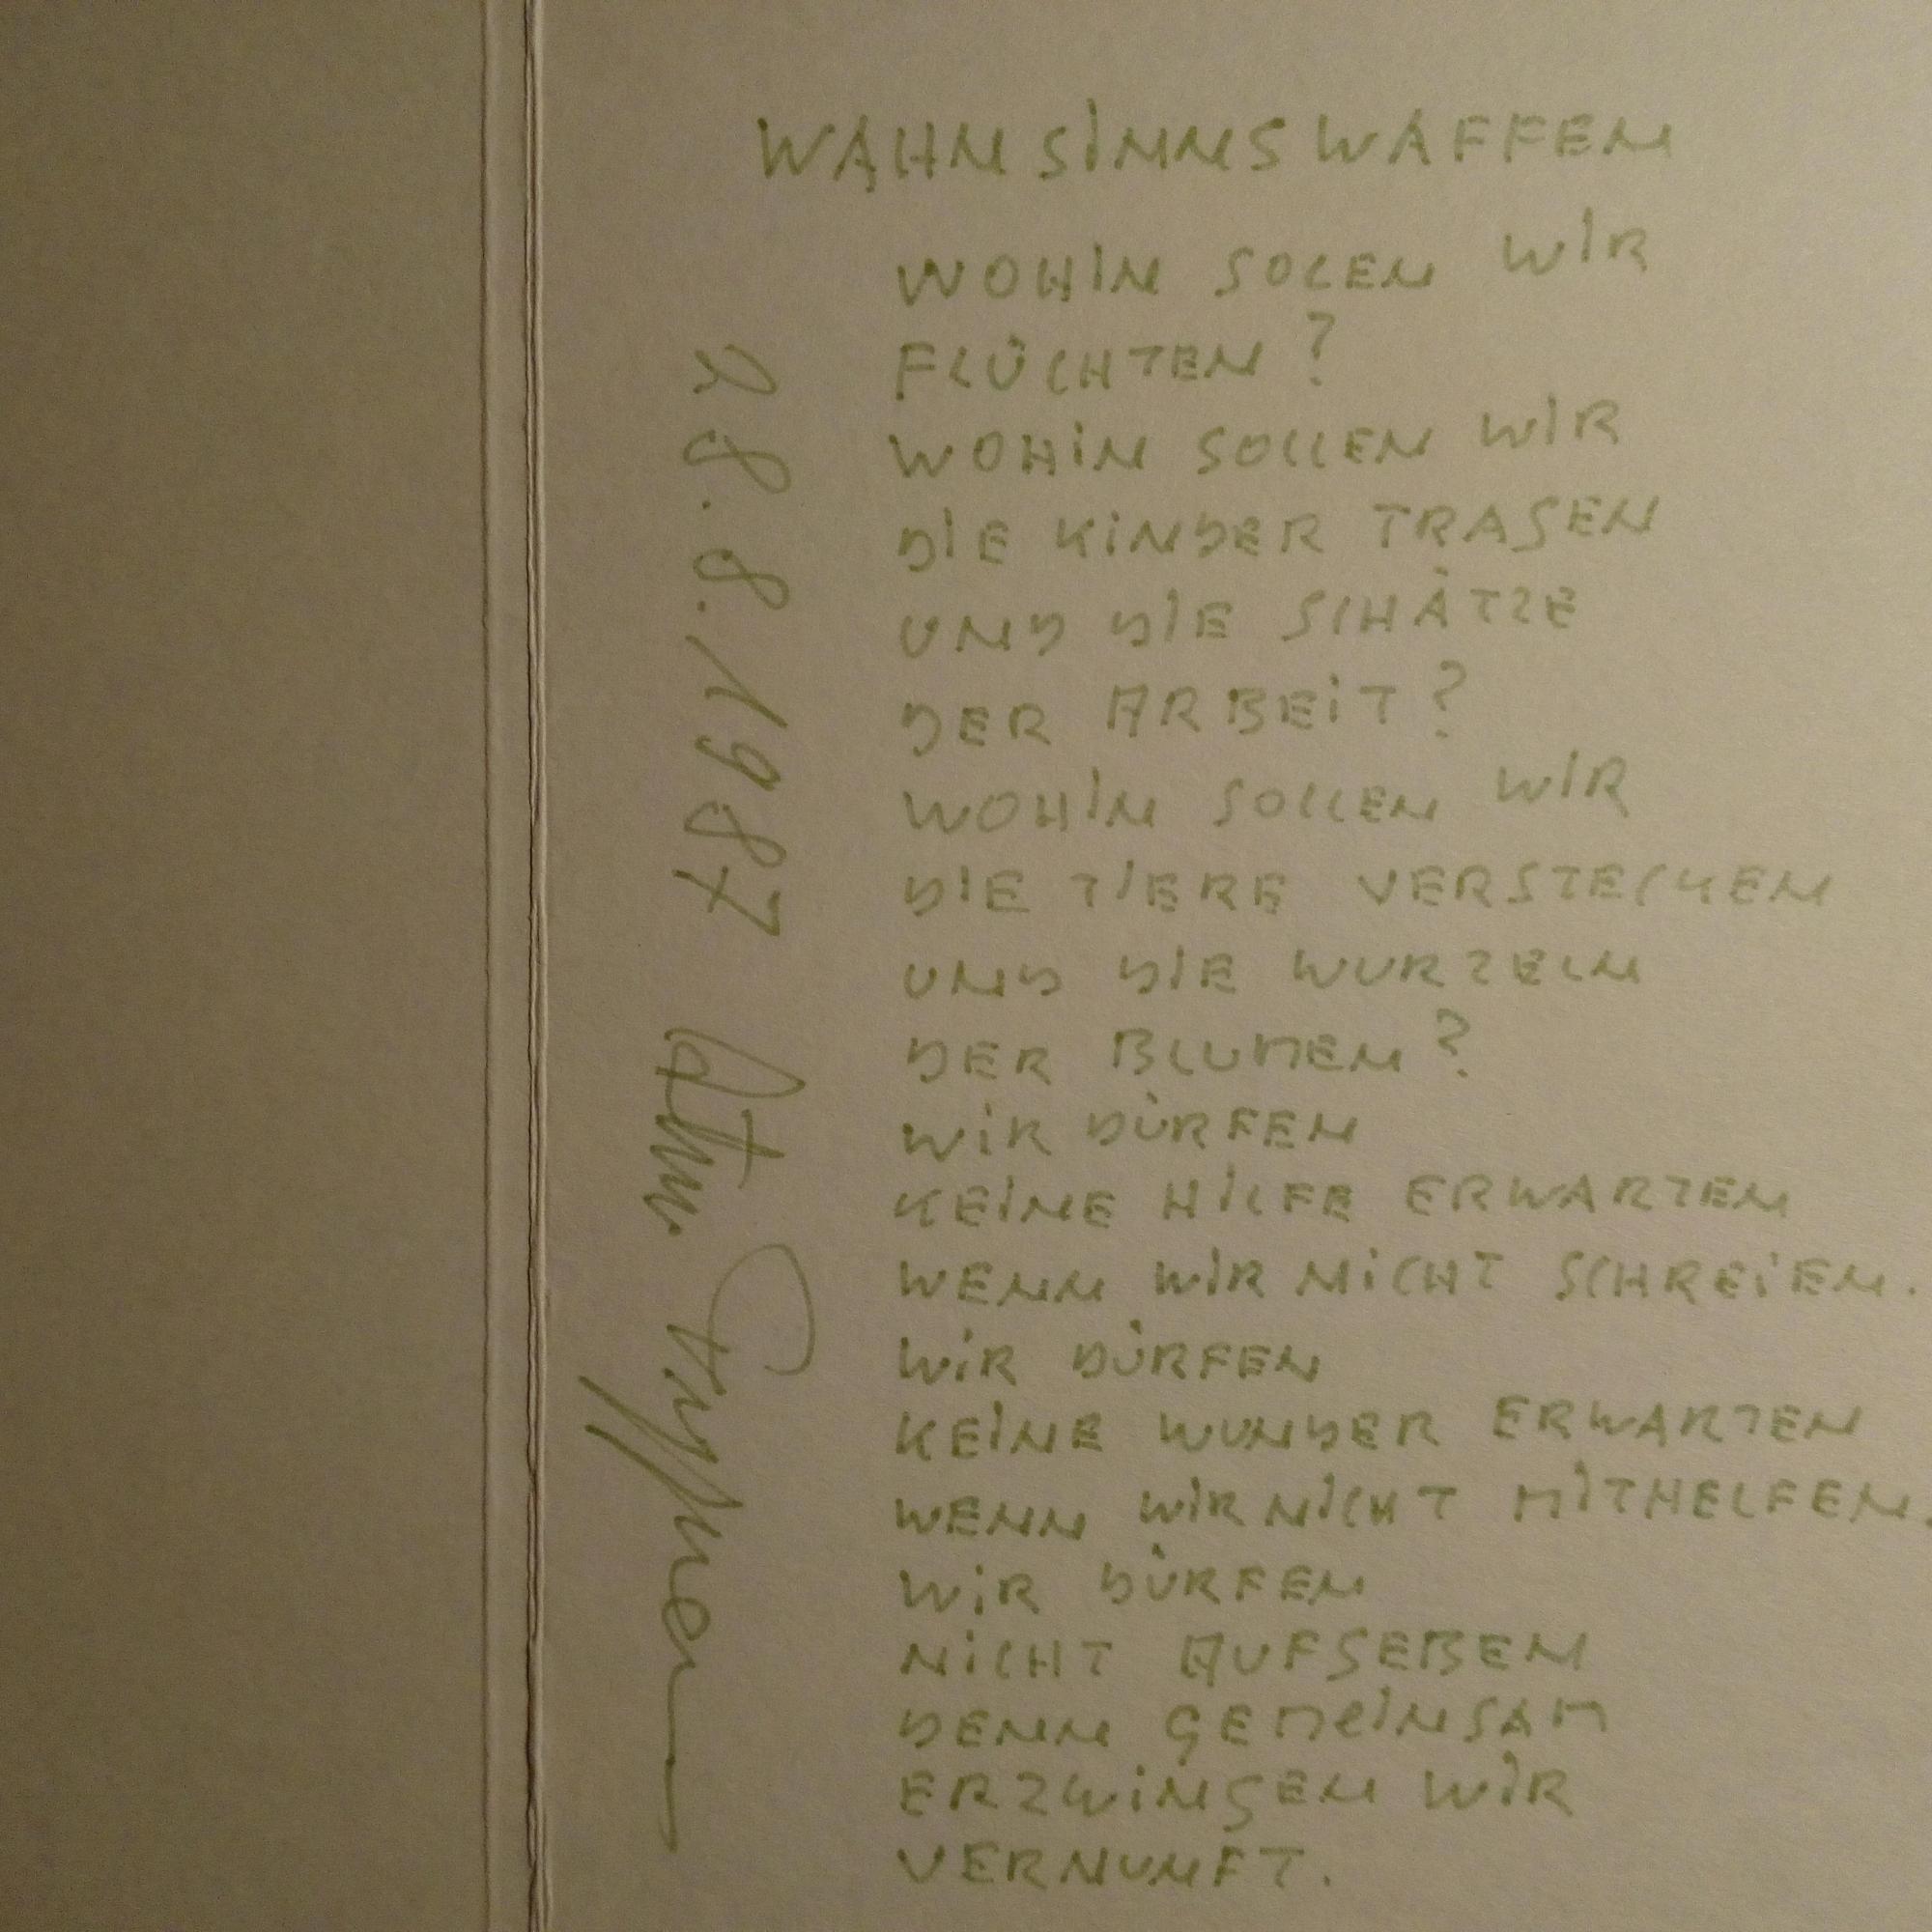 WAHNSINNSWAFFEN
WOHIN SOLEN WIR
FLÜCHTEN?
WOHIN SOLLEN WIR
DIE KINDER TRAGEN
UND DIE SCHÄTZE
DER ARBEIT?
WOHIN SOLLEN WIR
DIE TIERE VERSTECKEN
UND DIE WURZELN
DER BLUMEN?
WIR DÜRFEN
KEINE HILFE ERWARTEN
WENN WIR NICHT SCHREIEN.
WIR DÜRFEN
KEINE WUNDER ERWARTEN
WENN WIR NICHT MITHELFEN.
WIR DÜRFEN
NICHT AUFGEBEN
DENN GEMEINSAM
ERZWINGEN WIR
VERNUNFT.
28.8.1987